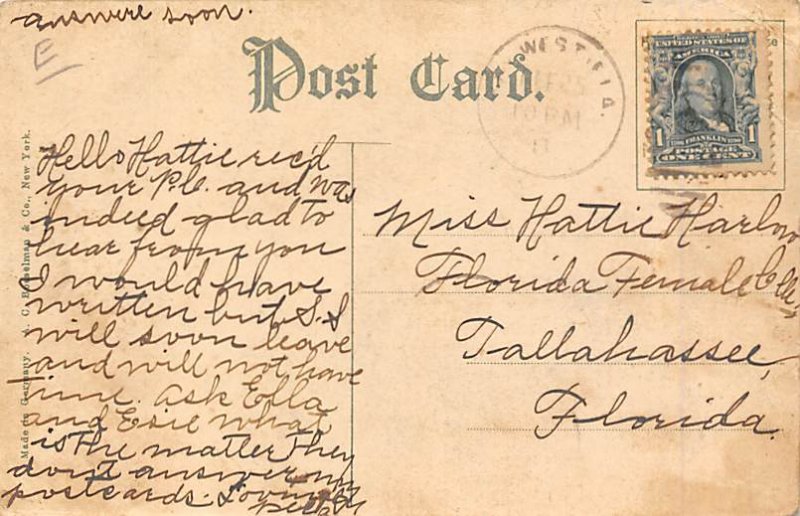 answere soon.
E
Post Card.
WEST, FLA.
11
UNITED STATES OF
AMERICA
1 FRANKLIN 1
POSTAGE
ONE CENT
Made in Germany. A. C. Bosselman & Co., New York.
Hello Hattie rec'd
your P.C. and was
indeed glad to
hear from you
I would have
written but S.S
will soon leave
and will not have
time. ask Ella
and Esie what
is the matter they
don't answer my
postcards. Loving
Miss Hattie Harlow
Florida Female
Tallahassee,
Florida.